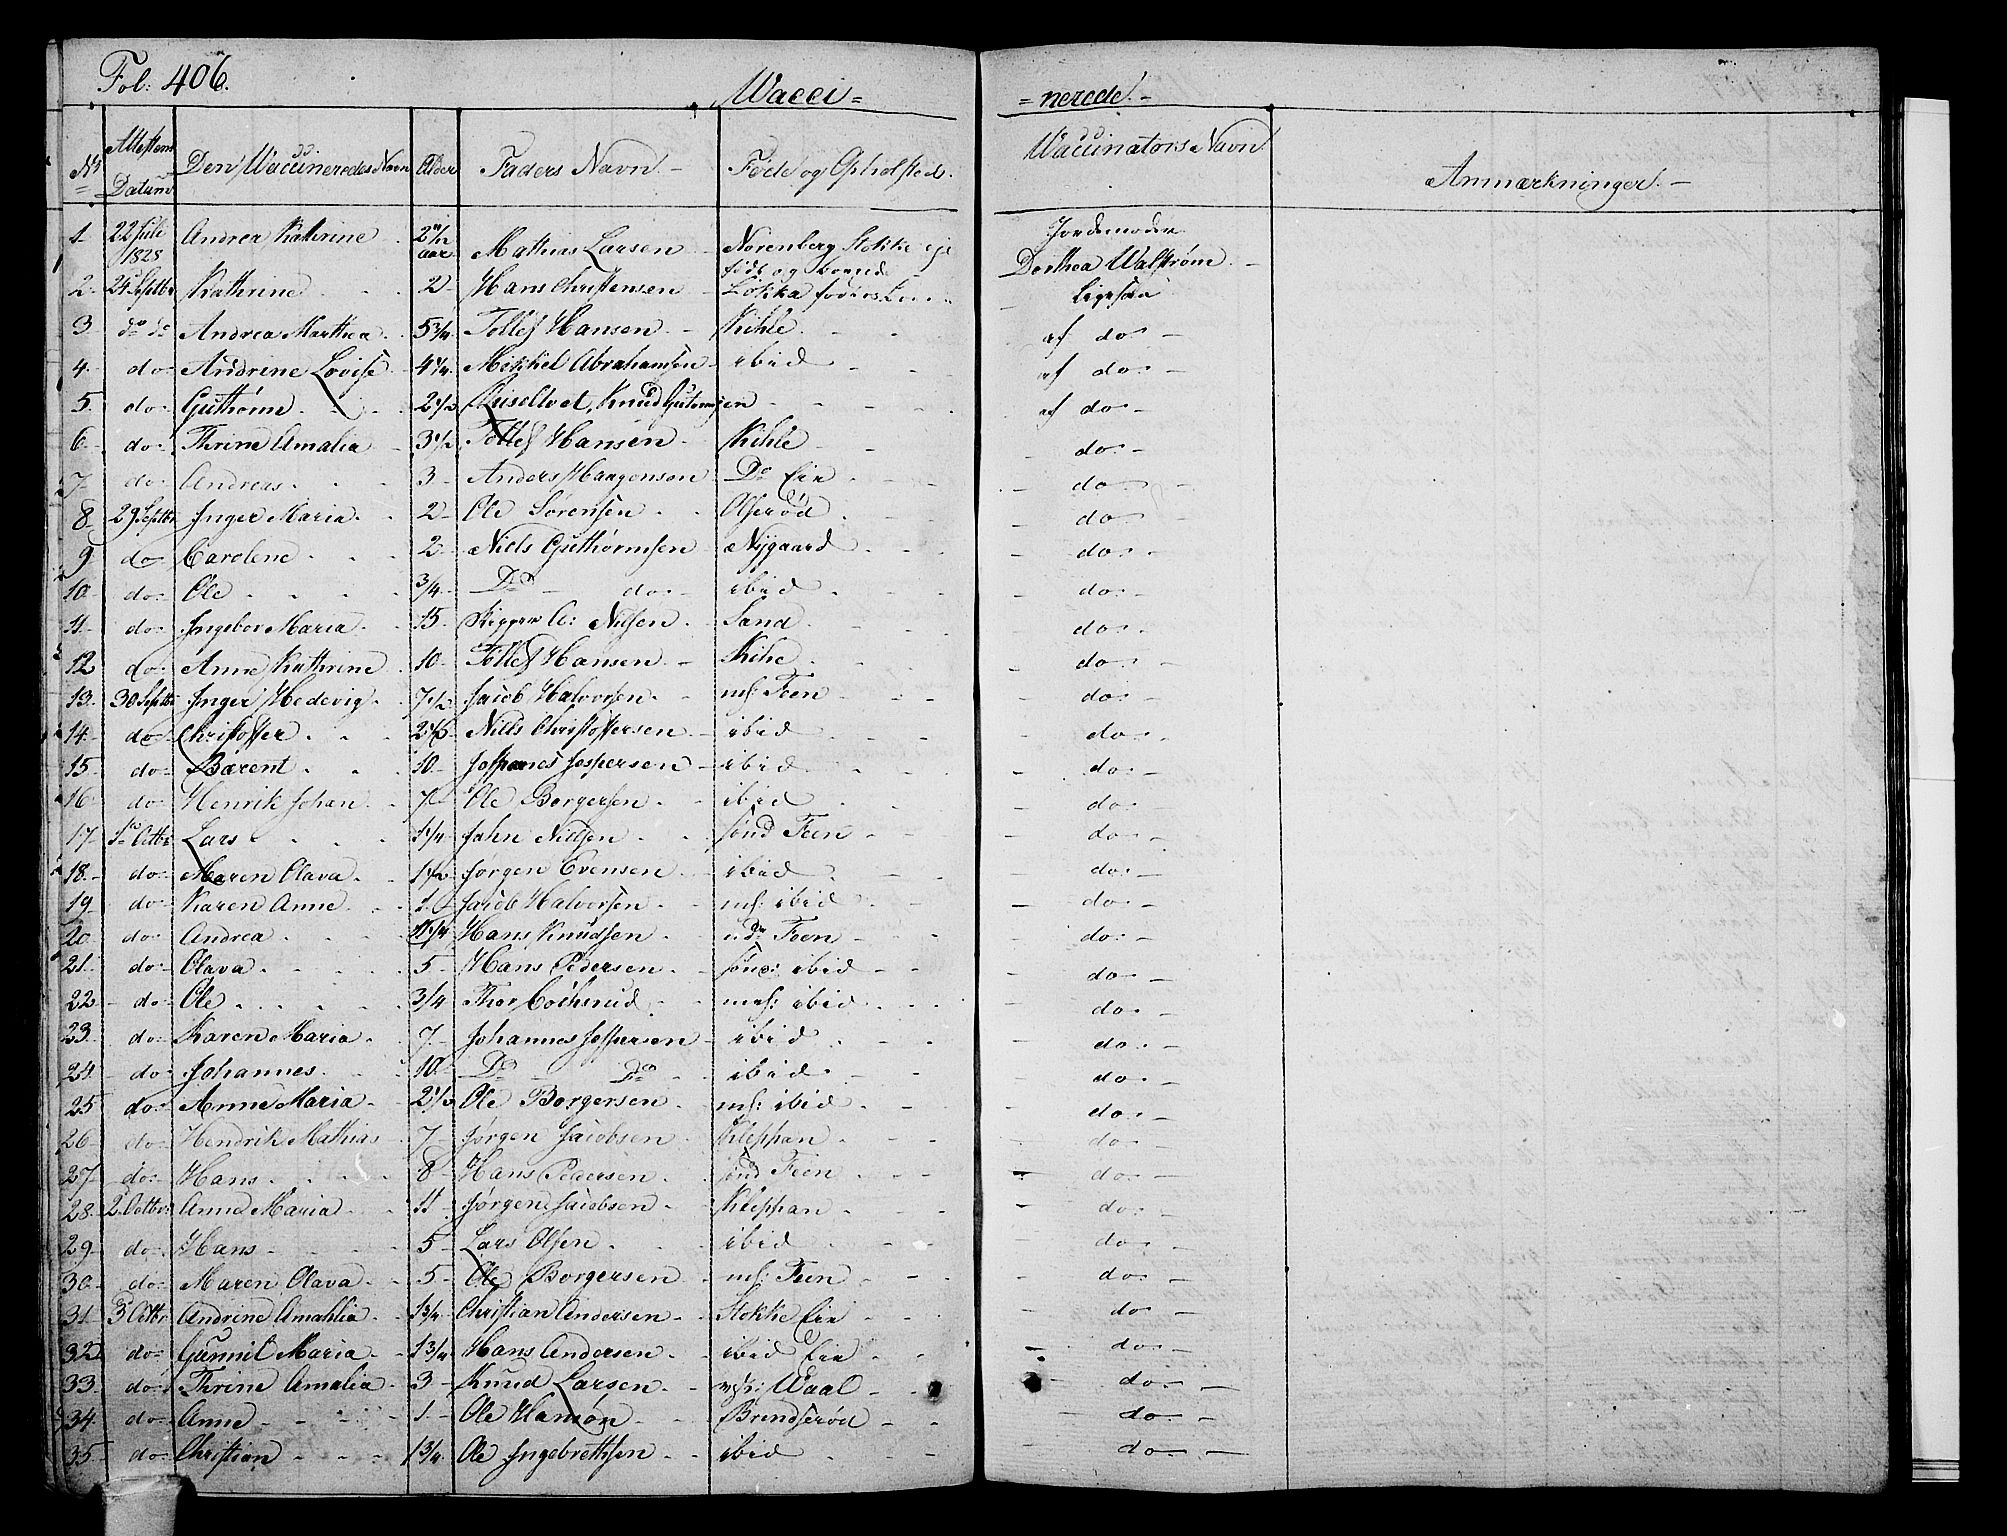 Fol: 406.
Wacci=
=nerede.-
No Attestens Datum Den Waccineredes Navn Alder Faders Navn.- Føde og Opholsted. Waccinatorens Navn Anmærkninger.-
1- 22 Juli 1828 Andrea Kathrine 2 aar Mathias Larsen Norenberg Stokke eje Jordemoder
født og boend Dorthea Walstrøm
2- 24 Septbr Kathrine 2- Hans Christensen Ligesaa
3- do do Andrea Marthea 5 3/4 Tollef Hansen Kihle af do-
4- do- Andrine Lovise 4 1/4 Mikkel Abrahamsen ibid af do-
5- do- Guthorm 2 1/2 Knud Gutormsen af do-
6- do- Thrine Amalia 3 1/2 Tollef Hansen Kihle do-
7- do- Andreas 3 Anders Haagensen Do Eie do-
8- 29 Septbr Inger Maria 2- Ole Sørensen Olserød do-
9 do- Carolene 2- Niels Guthormsen Nygaard do-
10- do- Ole 3/4 Do do- ibid do-
11- do- Ingebor Maria 15 Nilsen Sand do-
12 do- Anne Kathrine 10- Tollef Hansen Kihe do-
13- 30 Septbr Inger Hedevig 7 1/2 Jacob Halvorsen nf: Feen do-
14- do- Christoffer Nills Christoffersen ibid do-
15 do- Barent 10- Johannes Jespersen ibid do-
16- do- Henrik Johan 7- Ole Borgersen ibid do-
17- 1 Octbr Lars 1 1/4 John Nielsen sønd Feen do-
18- do- Maren Olava 1 1/2 Jørgen Evensen ibid do-
19- do- Karen Anne 1- Jacob Halvorsen nf: ibid do-
20- do- Andrea Hans Knudsen Feen do-
21- do- Olava 5- Hans Pedersen sønd: ibid do-
22- do- Ole 3/4 Thor ibid do-
23- do- Karen Maria 7- Johannes Jespersen ibid do-
24- do- Johannes 10- Do Do ibid do-
25 do- Anne Maria 2 1/2 Ole Borgersen nf: ibid do-
26- do- Hendrik Mathias 7- Jørgen Jacobsen Kleppan do-
27- do- Hans 8- Hans Pedersen sønd Feen do-
28- 2 Octbr Anne Maria 11 Jørgen Jacobsen Kleppan do-
29- do- Hans 5- Lars Olsen ibid do-
30- do- Maren Olava 5- Ole Borgersen nf: Feen do-
31- 3 Octbr Andrine Amahlia 1 3/4 Christian Andersen Stokke Eie do-
32- do- Gunnil Maria 1 3/4 Hans Andersen ibid Eie do-
33- do- Thrine Amalia 3- Knud Larsen Waal do-
34- do- Anne 1- Ole Hansøn Brendserød do-
35- do- Christian 1 3/4 Ole Ingebrethsen ibid do-